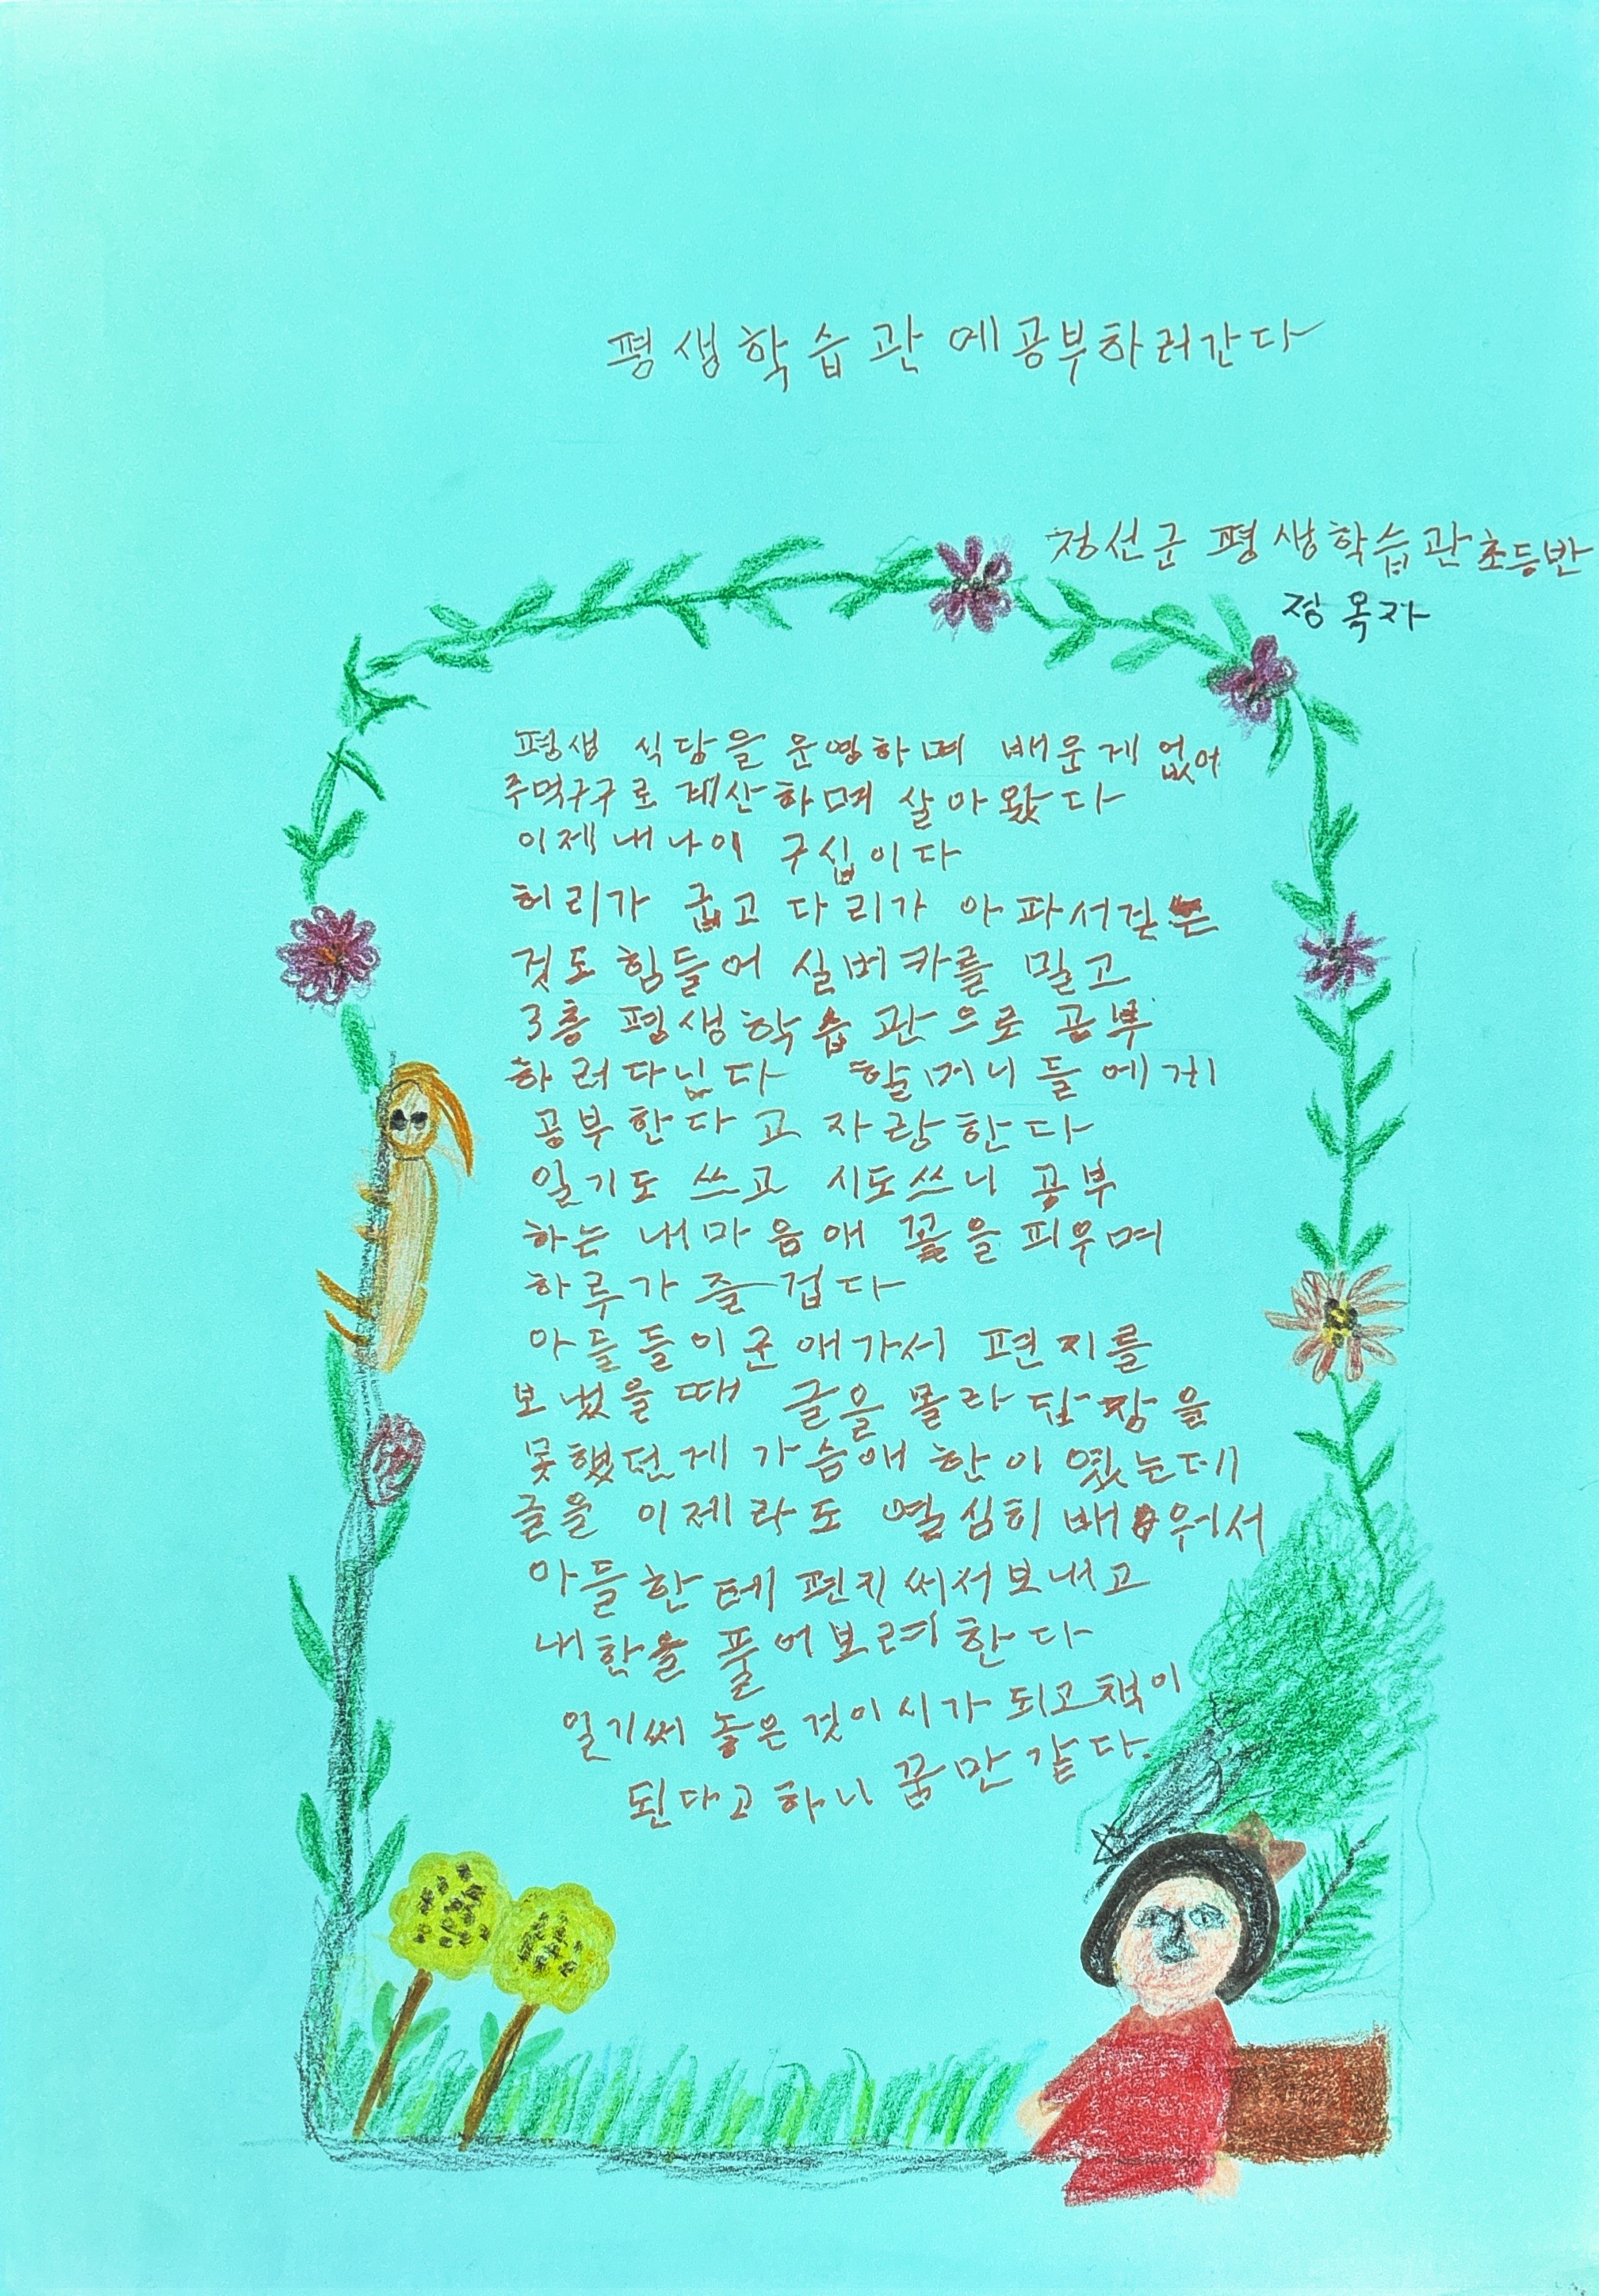 평생학습관에공부하러간다
정선군 평생학습관초등반
정옥자
평생 식당을 운영하며 배운게 없어
주먹구구로 계산하며 살아왔다
이제 내나이 구십이다
허리가 굽고 다리가 아파서걷는
것도 힘들어 실버카를 밀고
3층 평생학습관으로 공부
하러다닙다 할머니들에게
공부한다고 자랑한다
일기도 쓰고 시도쓰니 공부
하는 내마음애 꽃을 피우며
하루가 즐겁다
아들들이군애가서 편지를
보냈을때 글을 몰라 답장을
못했던게 가슴애 한이 였는데
글을 이제라도 열심히 배워서
아들한테 편지써서보내고
내한을 풀어보려한다
일기써 놓은 것이시가 되고책이
된다고하니 꿈만같다.